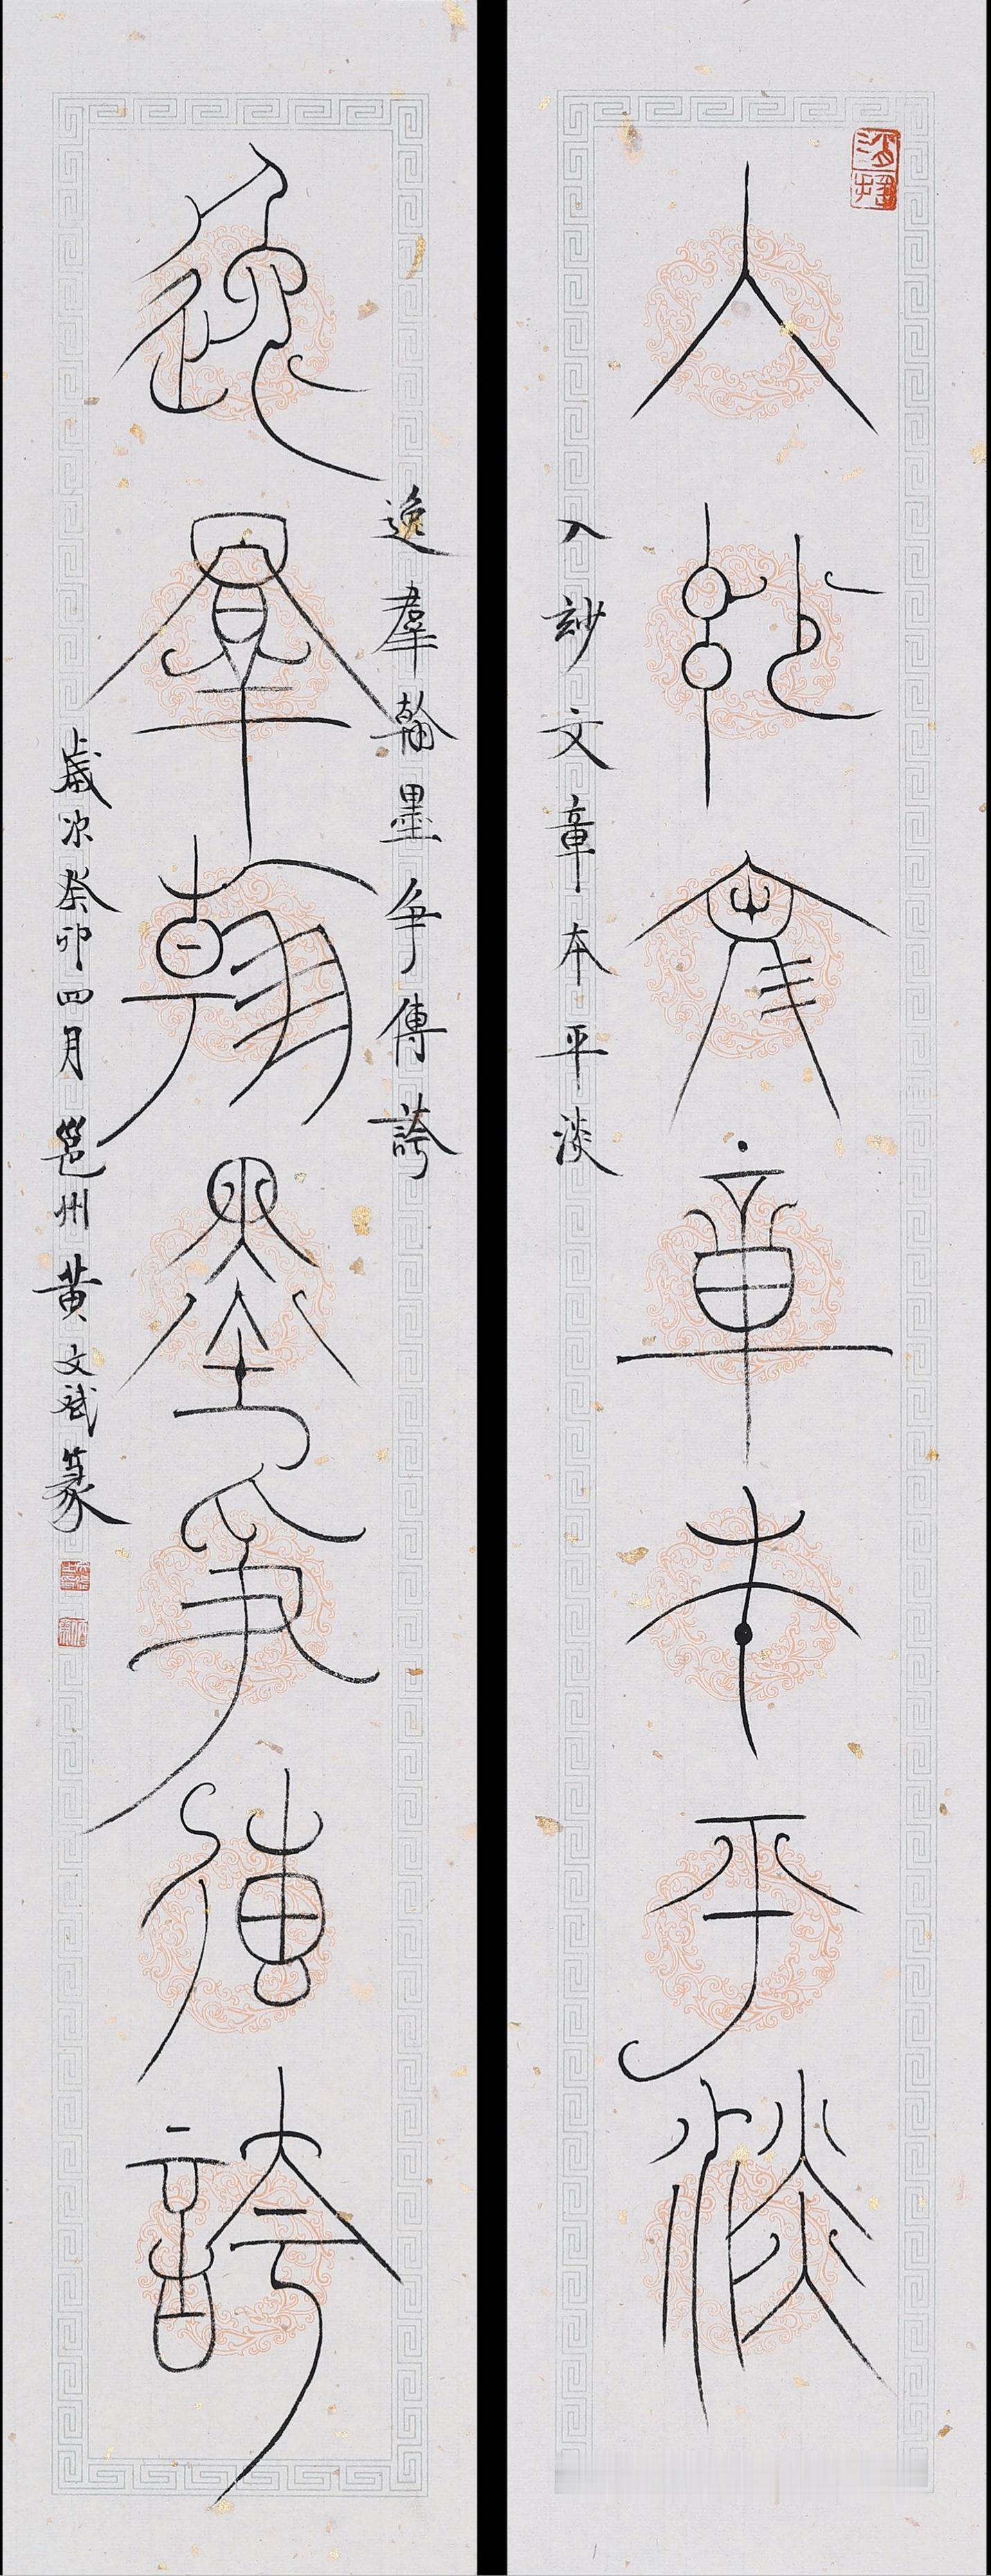 入玅文章本平淡
入玅文章本平淡
逸羣翰墨争傳誇
逸羣翰墨争傳誇
歲次癸卯四月邕州黃文斌篆